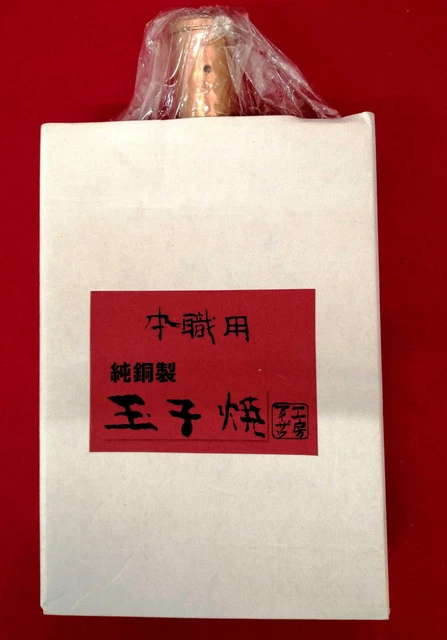 本職用
純銅製
玉子焼
工房
アイザワ